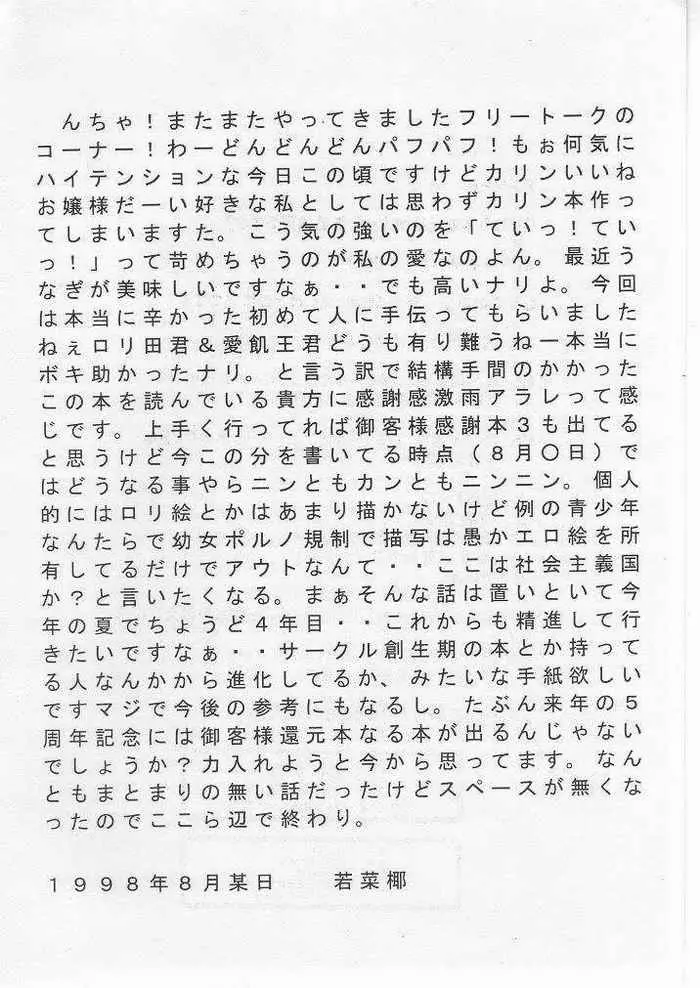 んちゃ！またまたやってきましたフリートークの
コーナー！わーどんどんどんパフパフ！もぉ何気に
ハイテンションな今日この頃ですけどカリンいいね
お嬢様だーい好きな私としては思わずカリン本作っ
てしまいますた。こう気の強いのを「ていっ！てい
っ！」って苛めちゃうのが私の愛なのよん。最近う
なぎが美味しいですなぁ・・でも高いナリよ。今回
は本当に辛かった初めて人に手伝ってもらいました
ねぇロリ田君＆愛飢王君どうも有り難うねー本当に
ボキ助かったナリ。と言う訳で結構手間のかかった
この本を読んでいる貴方に感謝感激雨アラレって感
じです。上手く行ってれば御客様感謝本３も出てる
と思うけど今この分を書いてる時点（８月〇日）で
はどうなる事やらニンともカンともニンニン。個人
的にはロリ絵とかはあまり描かないけど例の青少年
なんたらで幼女ポルノ規制で描写は愚かエロ絵を所
有してるだけでアウトなんて・・ここは社会主義国
か？と言いたくなる。まぁそんな話は置いといて今
年の夏でちょうど４年目・・これからも精進して行
きたいですなぁ・・サークル創生期の本とか持って
る人なんかから進化してるか、みたいな手紙欲しい
ですマジで今後の参考にもなるし。たぶん来年の５
周年記念には御客様還元本なる本が出るんじゃない
でしょうか？力入れようと今から思ってます。なん
ともまとまりの無い話だったけどスペースが無くな
ったのでここら辺で終わり。
１９９８年８月某日　　若菜椰